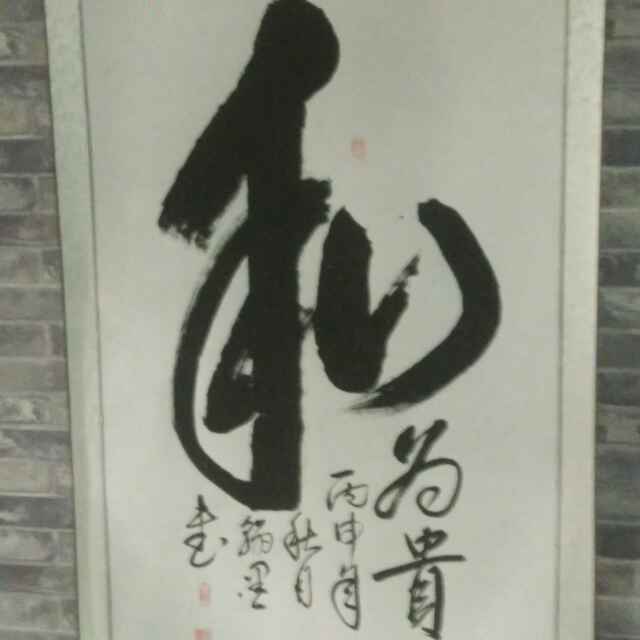 和
为贵
丙申年
秋月
翰墨
书